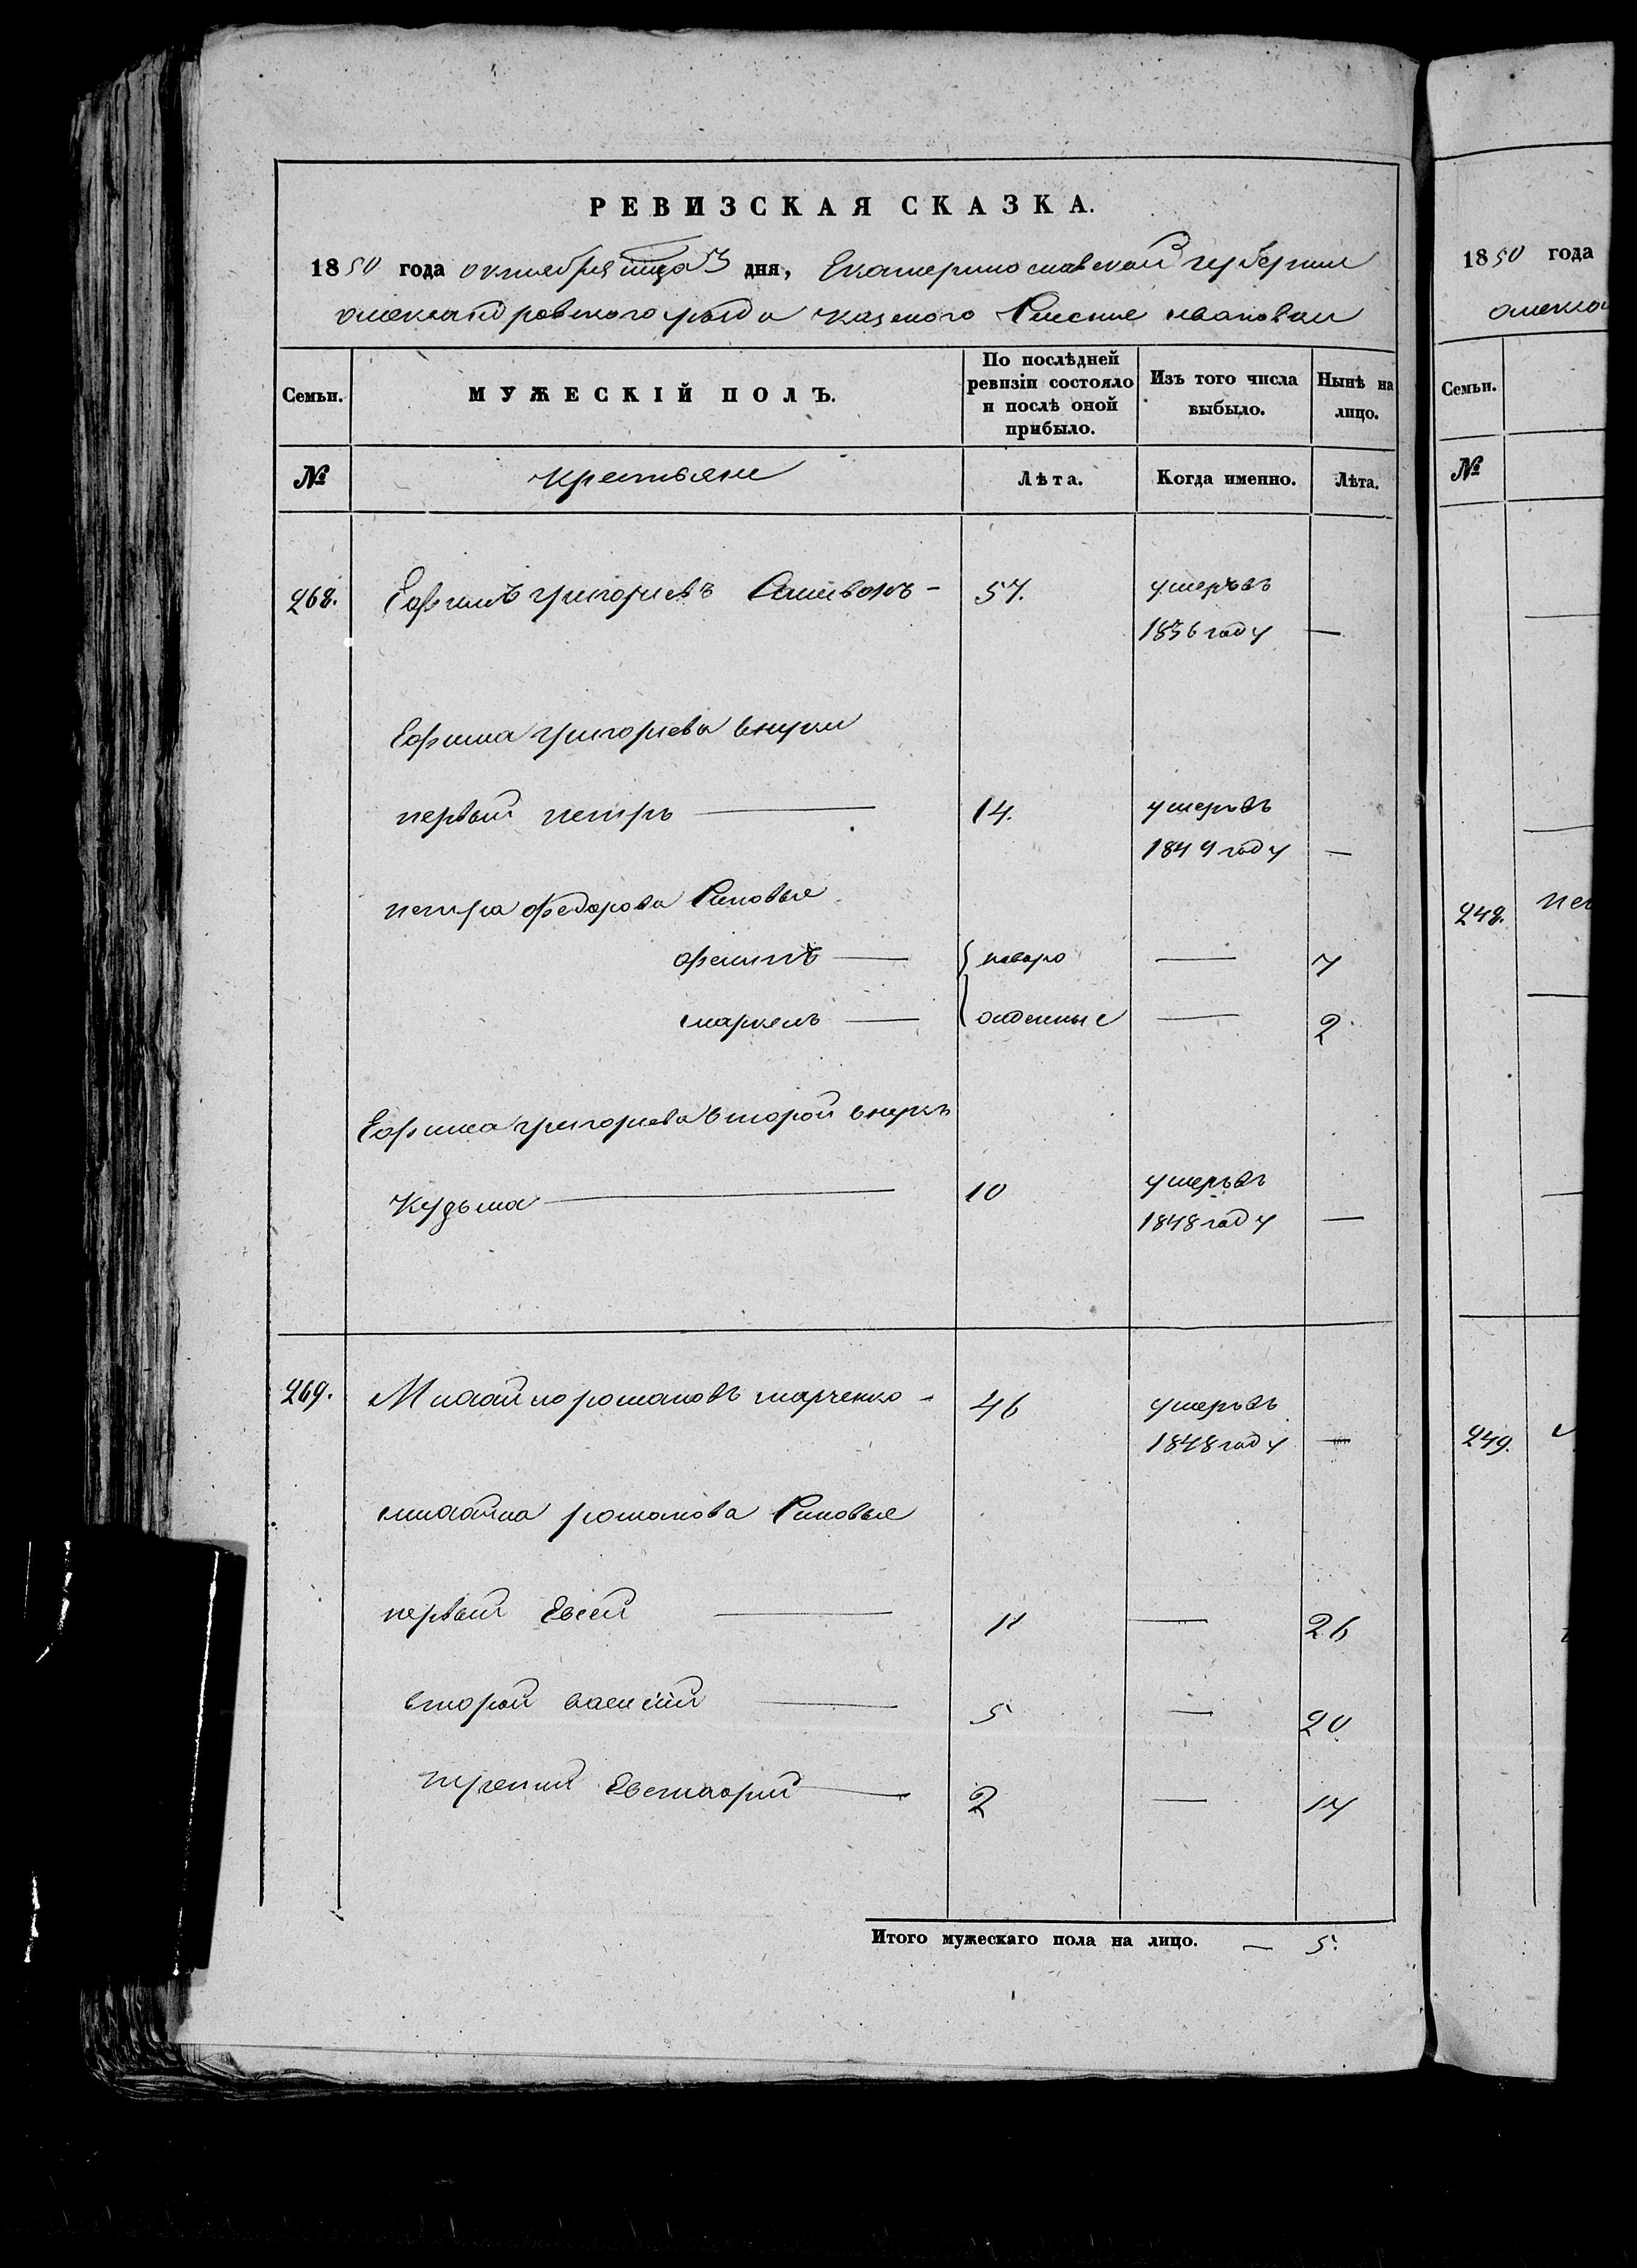 РЕВИЗСКАЯ СКАЗКА.
1850 года октября мца 3 дня, Екатеринославской губернии
александровского уезда казеного Селение ивановки
Семьи.
МУЖЕСКІЙ ПОЛЪ.
По послѣдней ревизіи состояло и послѣ оной прибыло.
Изъ того числа выбыло.
Нынѣ на лицо.
№
крестьяне
Лѣта.
Когда именно.
Лѣта.
268. Ефимъ григориевъ - 57. умеръ въ
1836 году —
Ефима григориева внуки
первый петръ — 14. умеръ въ
1849 году —
петра федорова Синовье
филипъ — новоро — 7
маркелъ — жденные — 2
Ефима григориева второй внукъ
Кузьма — 10 умеръ въ
1848 году —
269. Михайло романовъ марченко - 46 умеръ въ
1848 году —
михайла романова Синовье
первый Евсей — 11 — 26
второй василий — 5 — 20
третий Евстафий — 2 — 17
Итого мужескаго пола на лицо. — 5.
1850 года
Семьи.
№
248.
249.